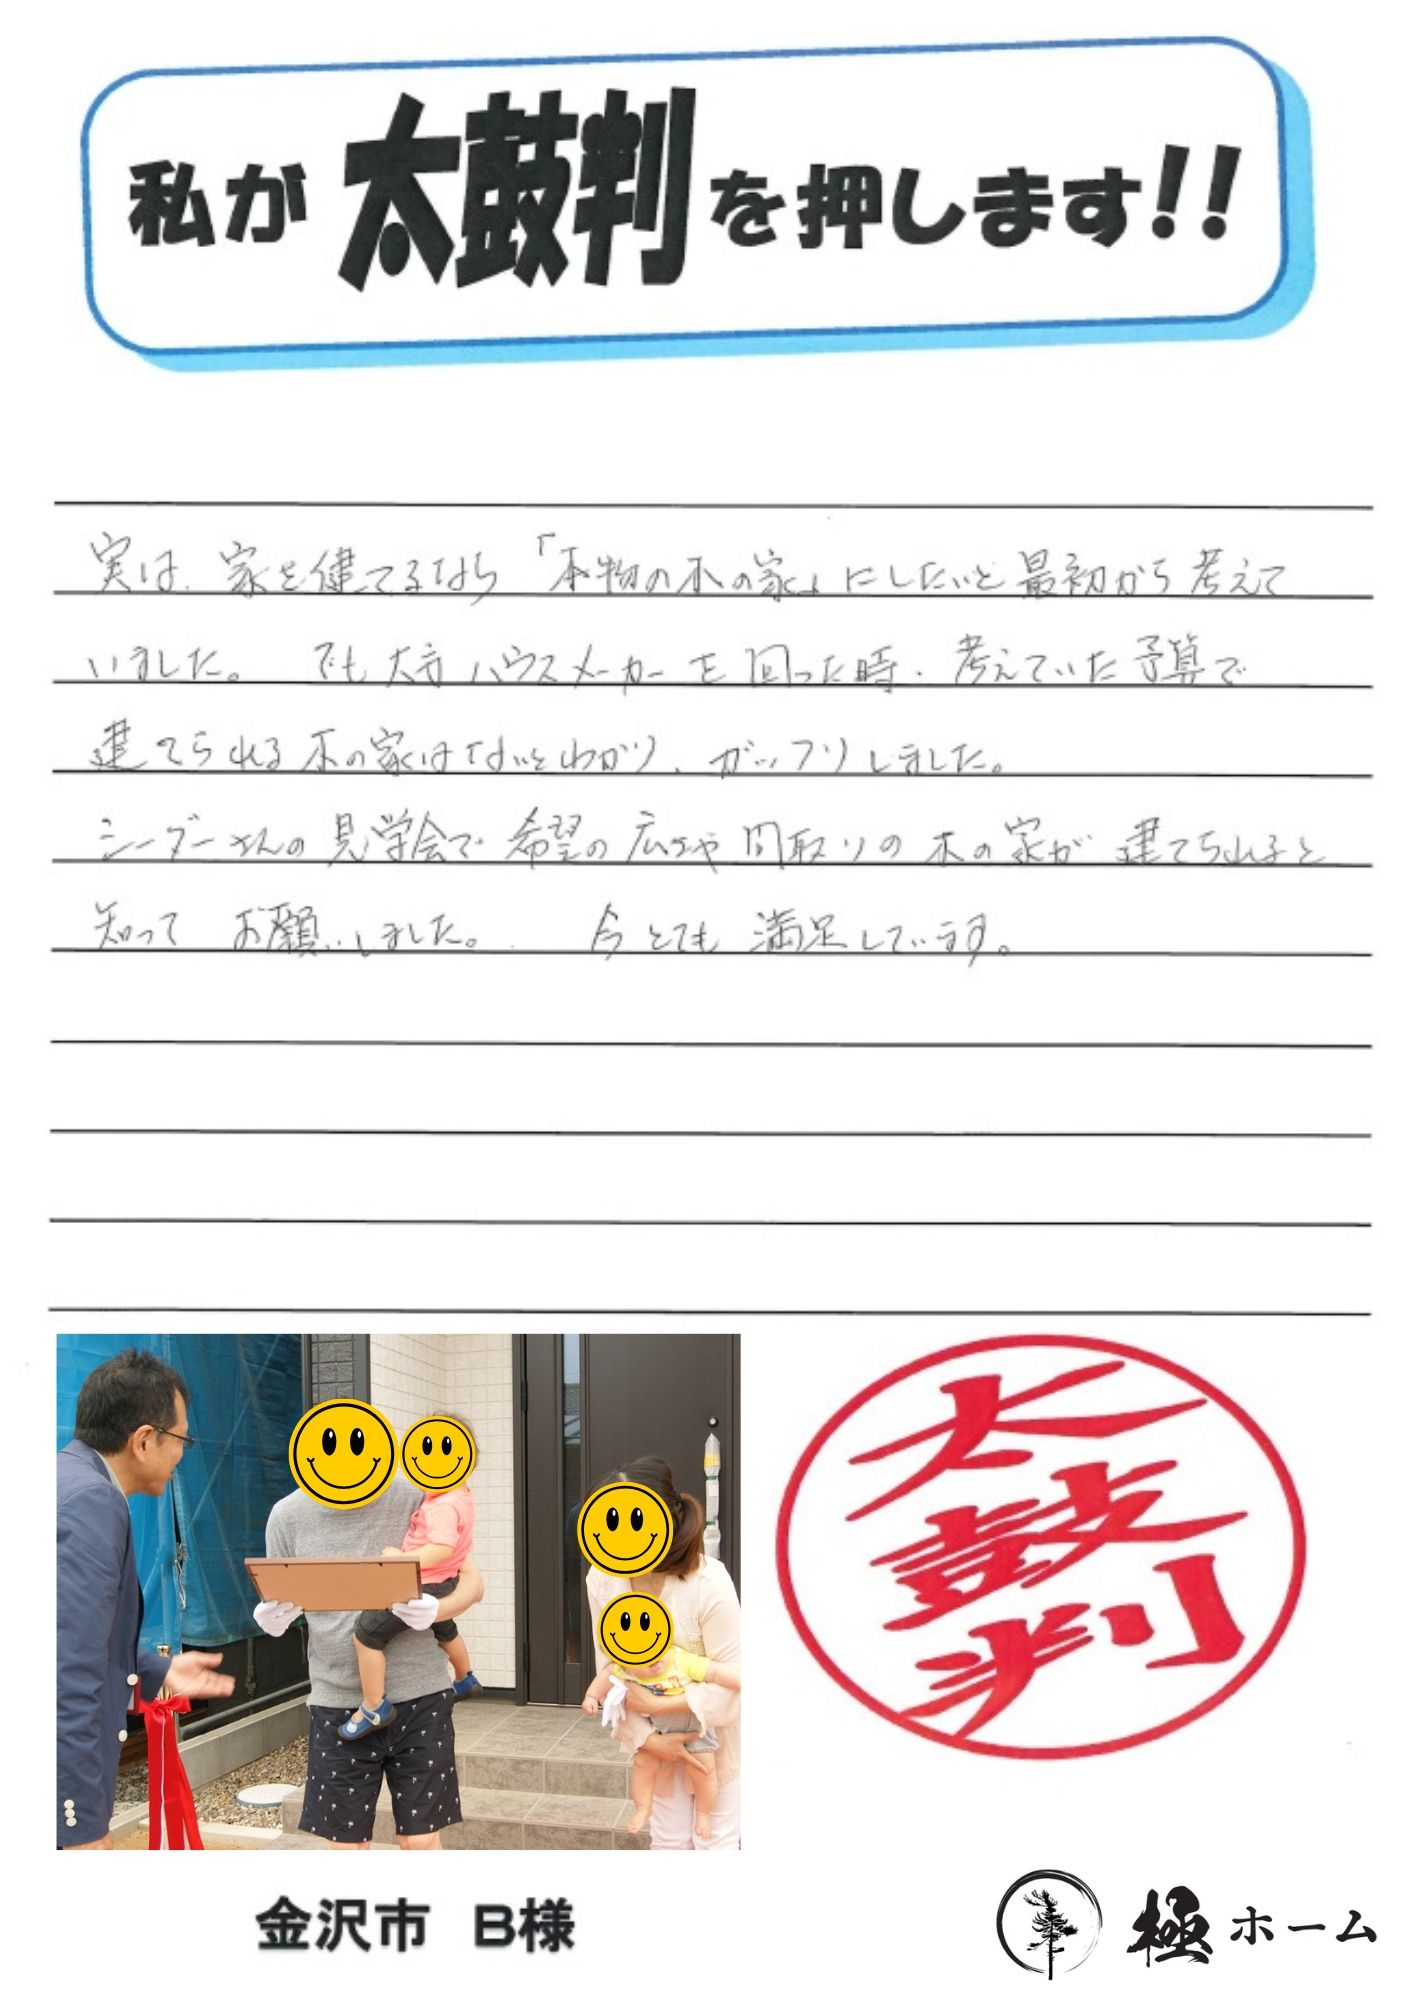 私が太鼓判を押します!!
実は、家を建てるなら「本物の木の家」にしたいと最初から考えて
いました。 でも大手ハウスメーカーを回った時、考えていた予算で
建てられる木の家はないとわかり、ガックリしました。
シーダーさんの見学会で希望の広さや間取りの木の家が建てられると
知って お願いしました。 今とても満足しています。
太鼓判
金沢市 B様
極ホーム